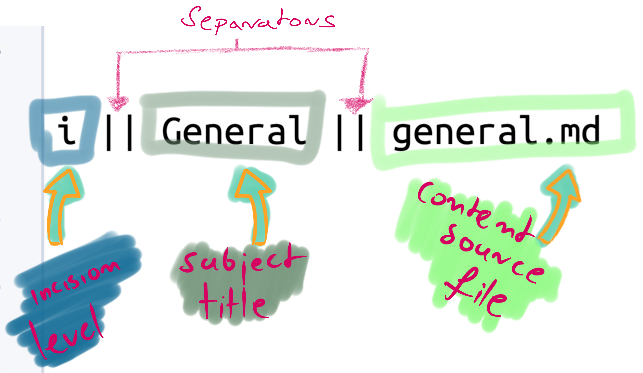 Separators
i || General || general.md
incision
level
subject
title
content
source
file